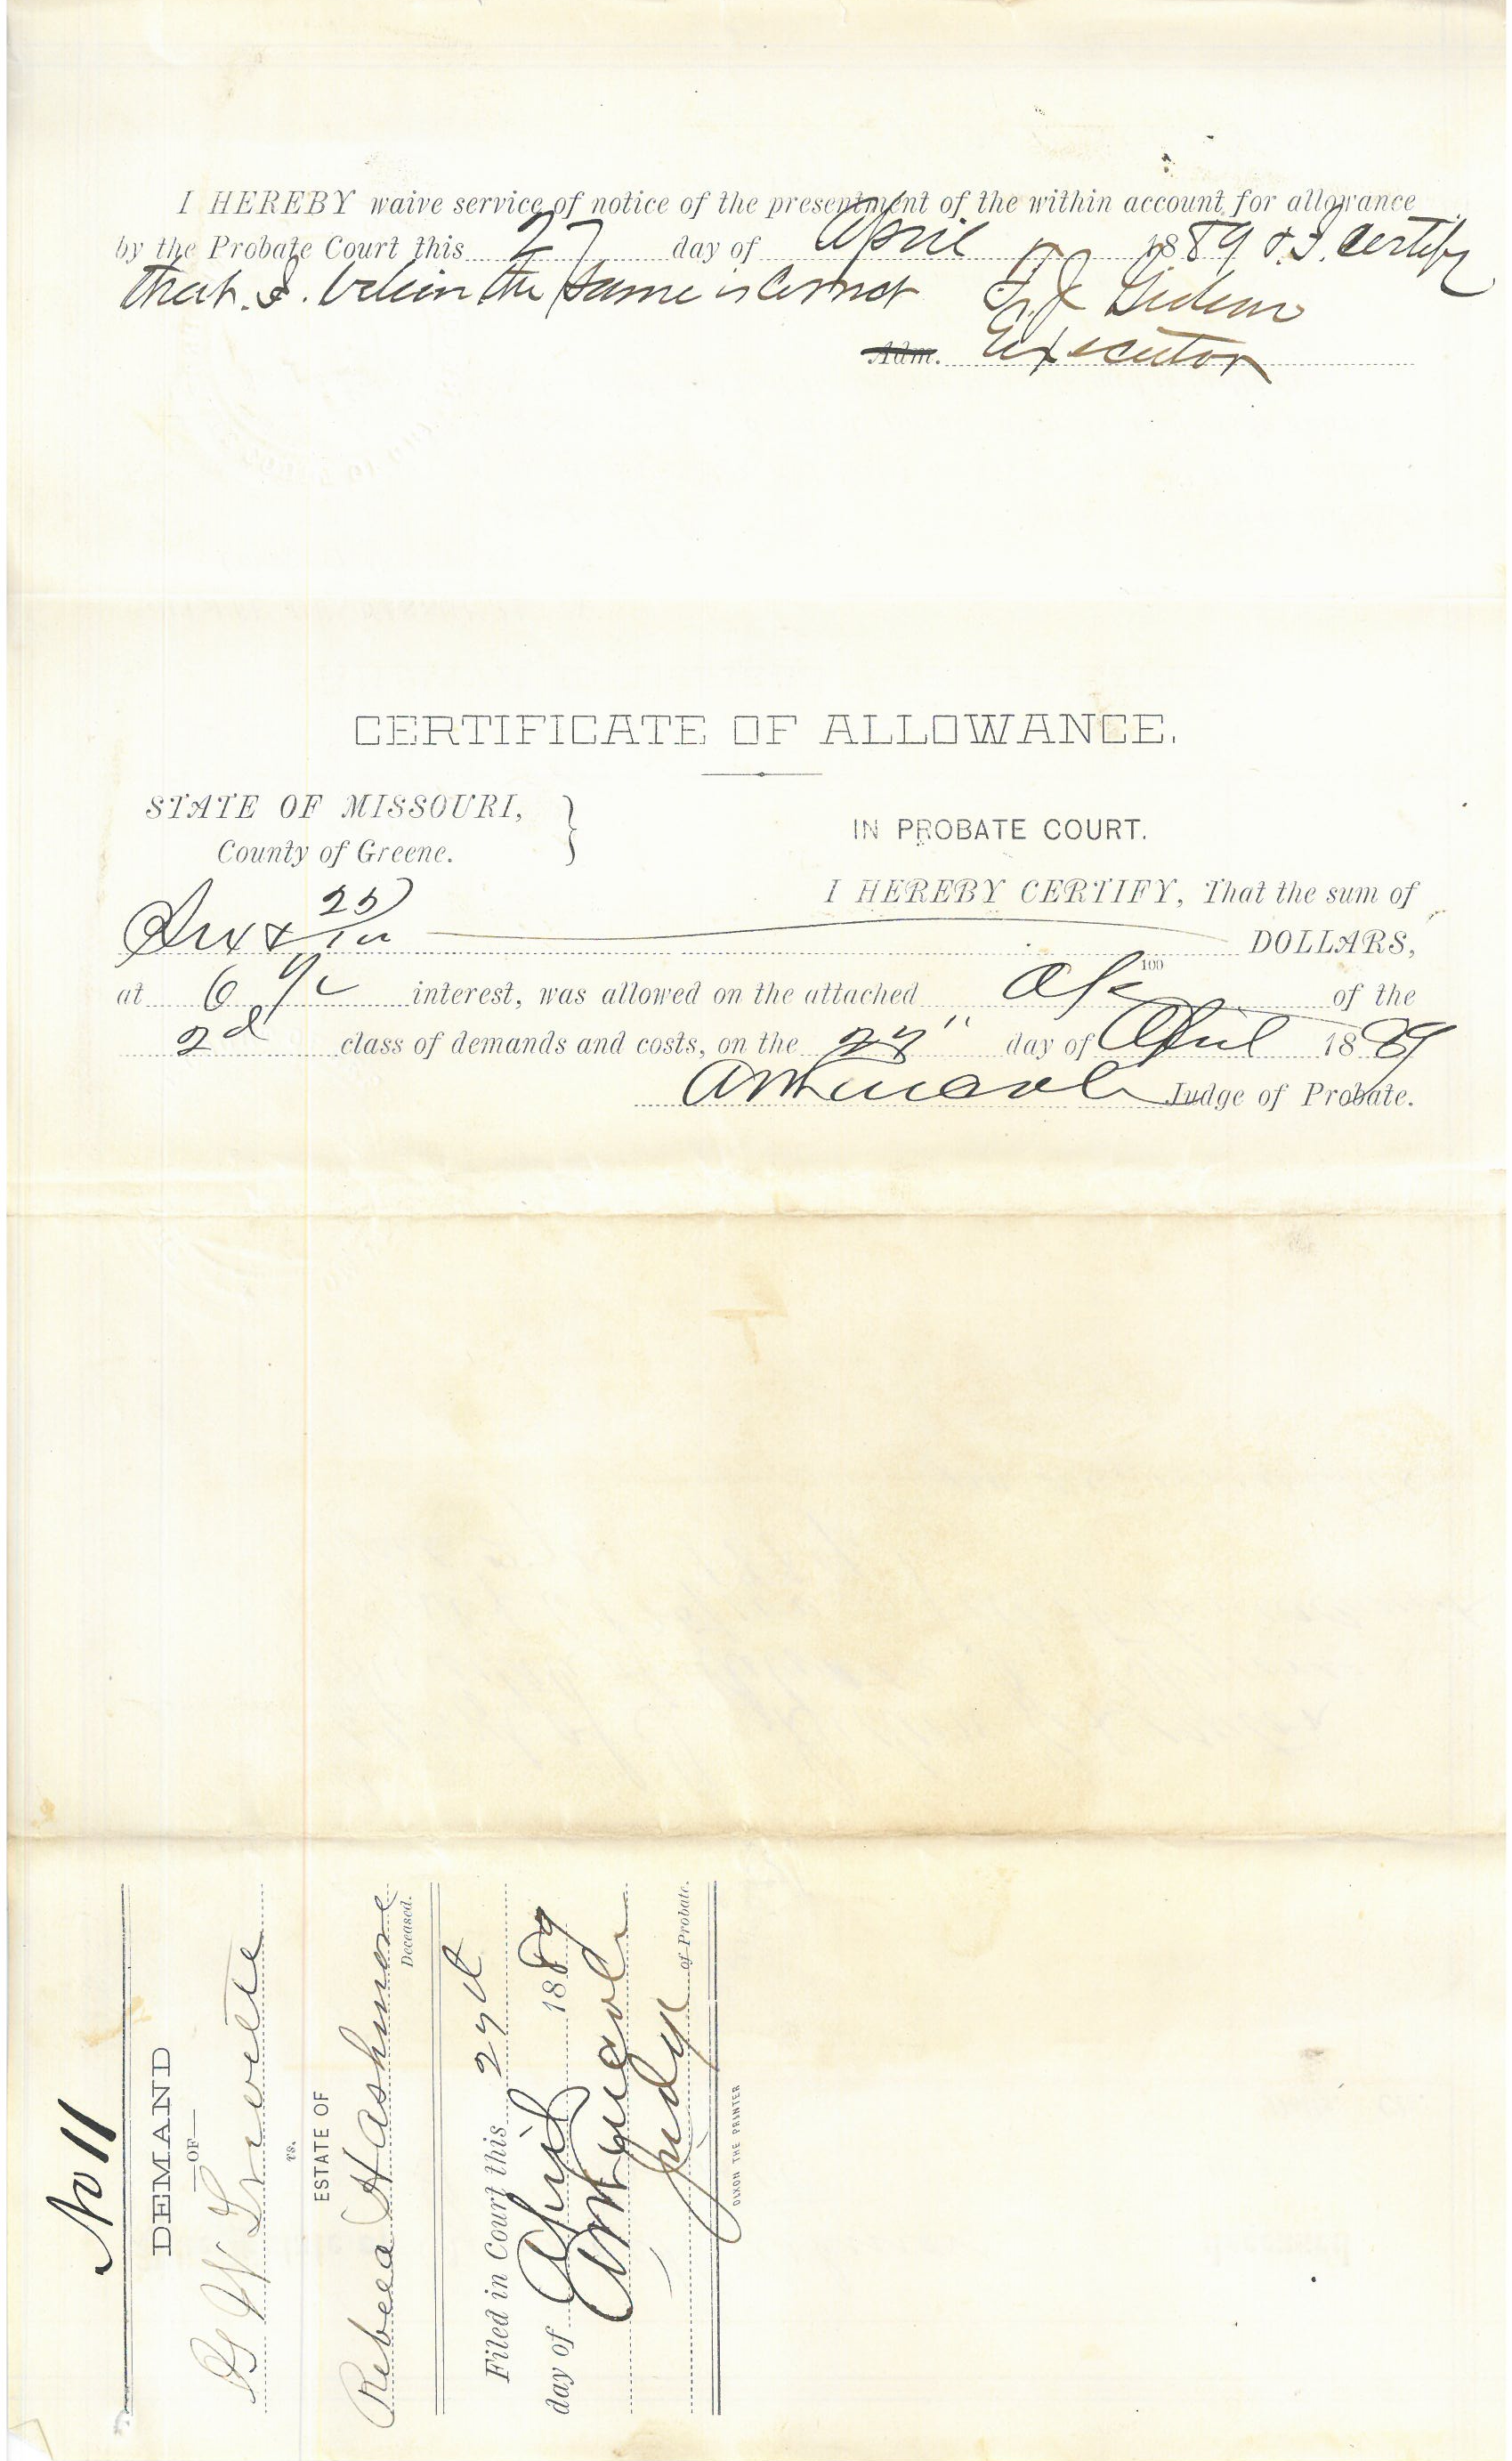 I HEREBY waive service of notice of the presentment of the within account for allowance
by the Probate Court this 27 day of April 1889 & I certify
that I. believe the same is correct
Executor
Adm.
CERTIFICATE OF ALLOWANCE.
STATE OF MISSOURI,
County of Greene.
IN PROBATE COURT.
I HEREBY CERTIFY, That the sum of
Six & 25/100 DOLLARS,
at 6 % interest, was allowed on the attached a/c of the
2d class of demands and costs, on the 27" day of April 1889
Judge of Probate.
No 11
DEMAND
—OF—
vs.
ESTATE OF
Rebeca H Ashmore
Deceased.
Filed in Court this 27th
day of April 1889
Judge of Probate.
DIXON THE PRINTER